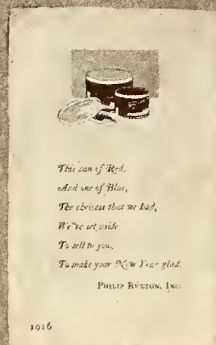 This can of Red,
And one of Blue,
The choicest that we had,
We've set aside
To sell to you,
To make your New Year glad.
PHILIP RUXTON, INC.
1916